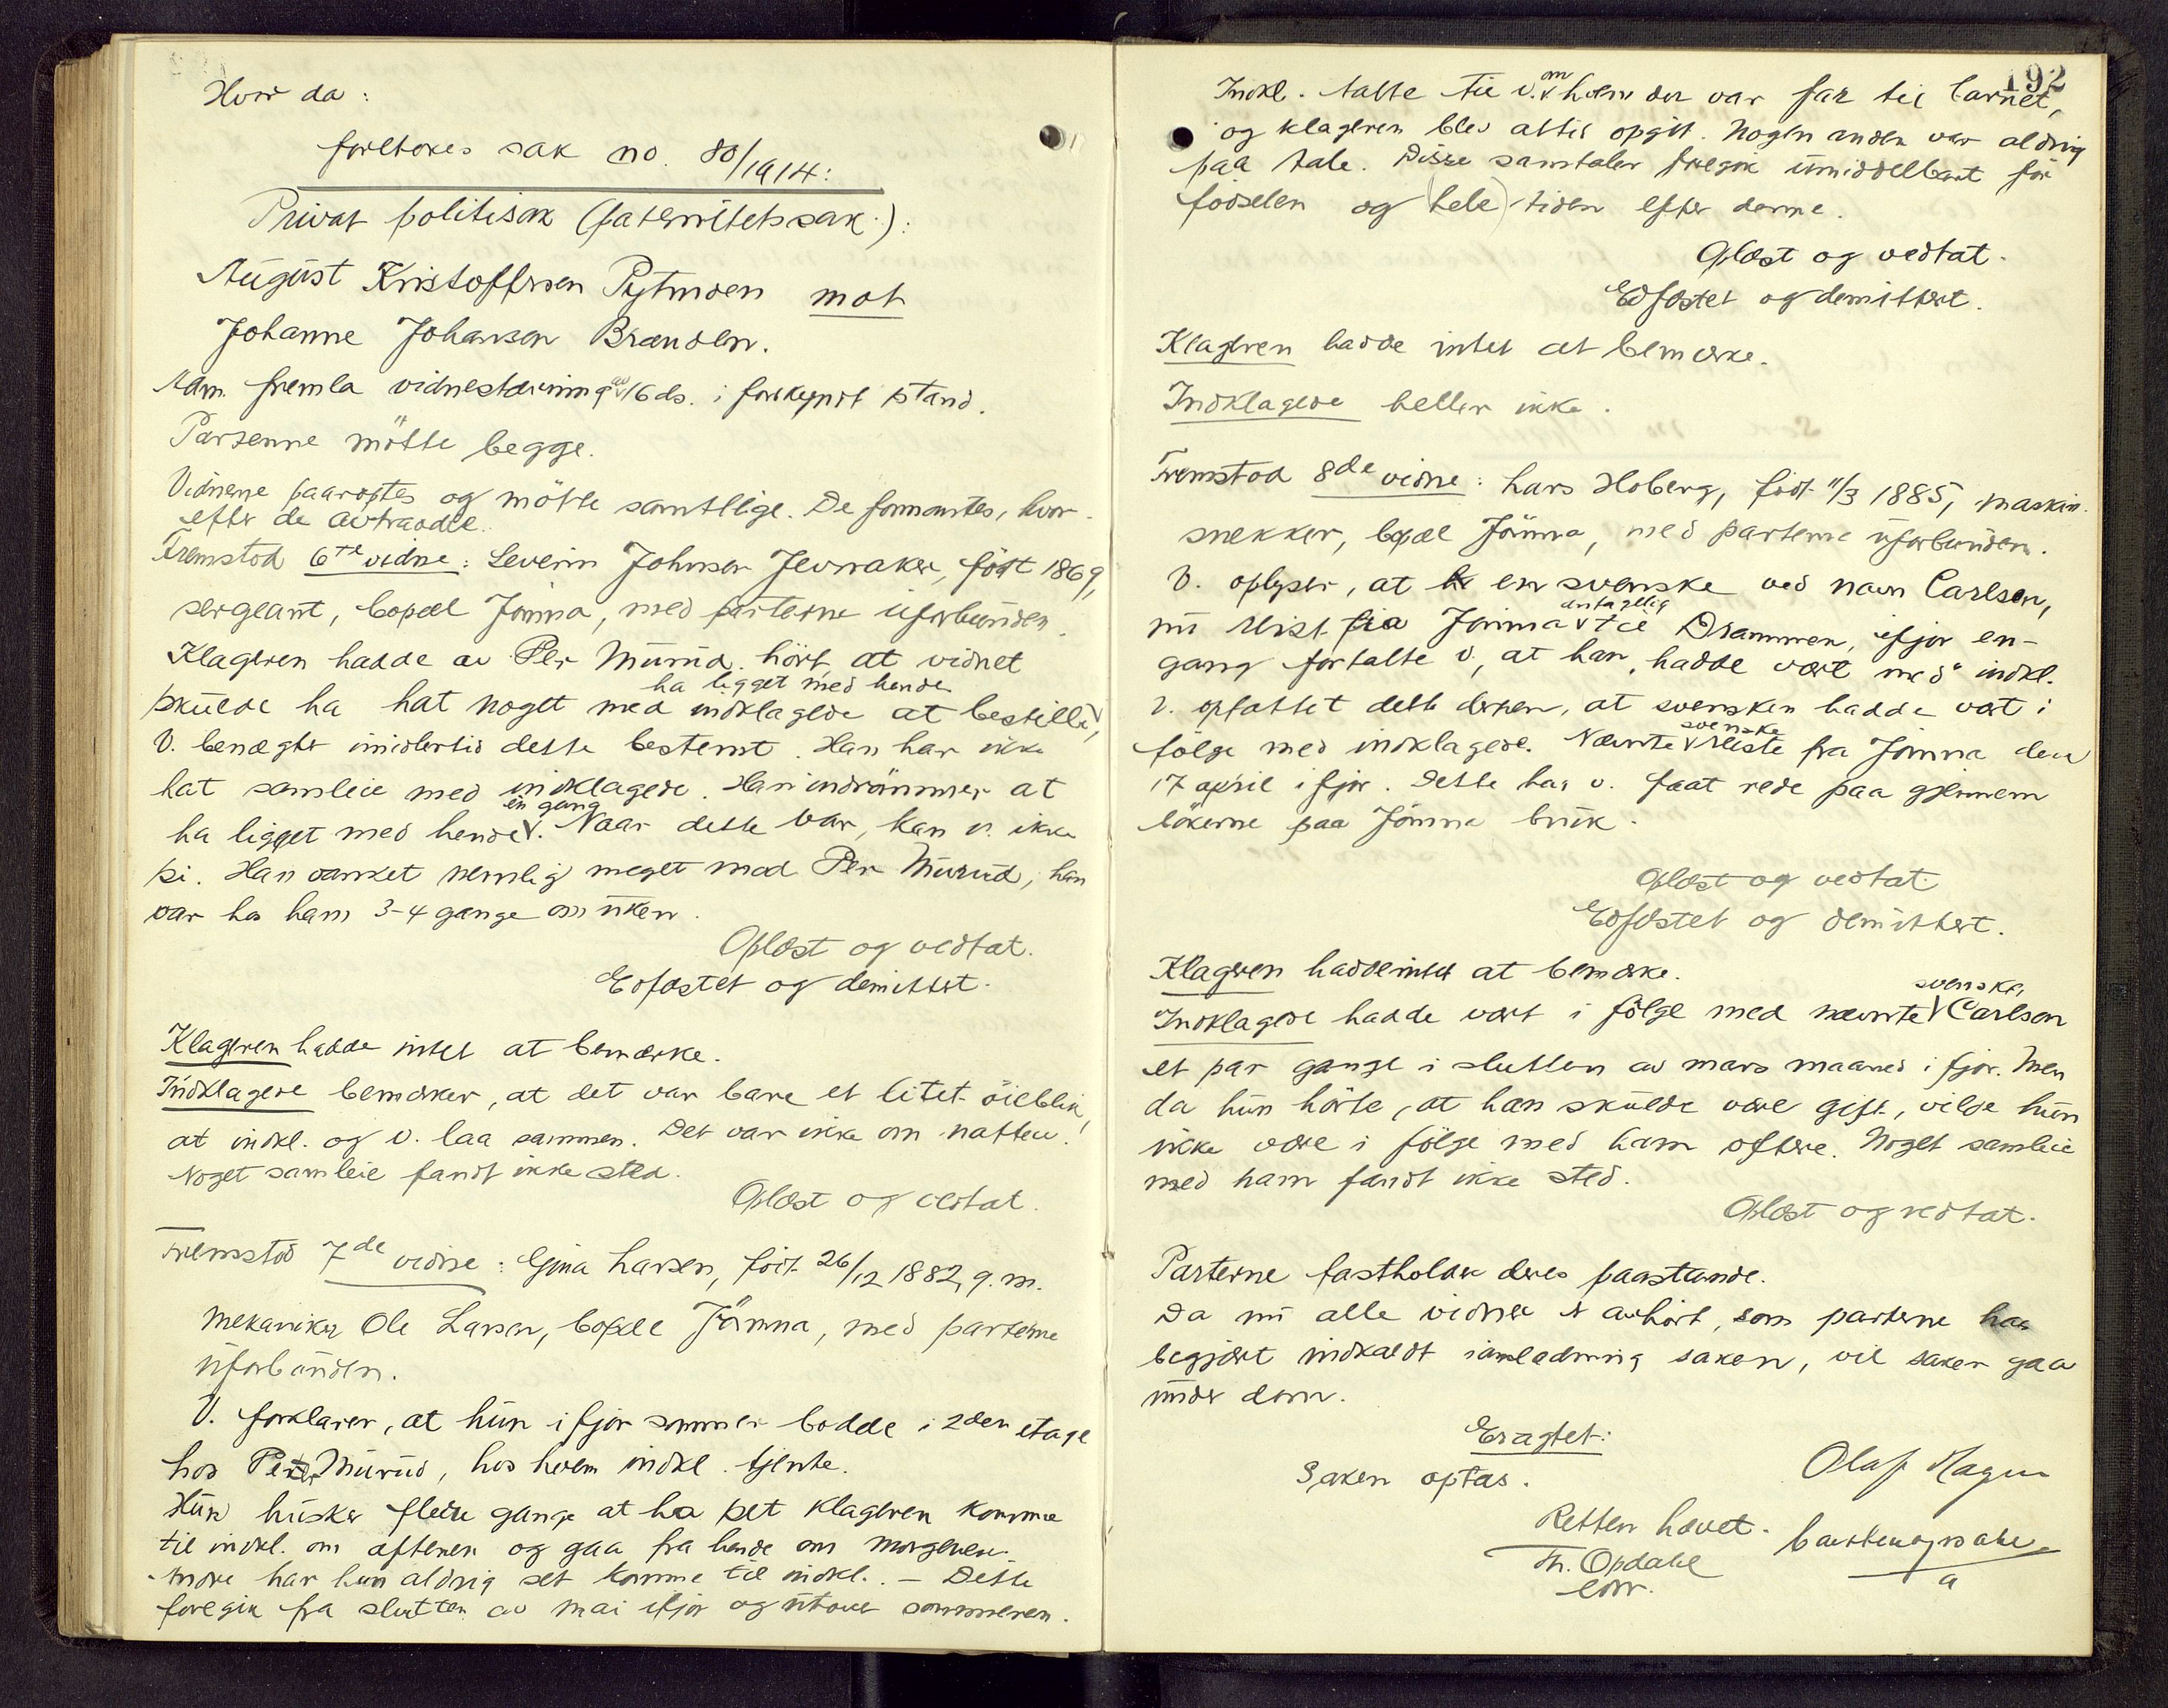 Hvor da:
foretokes sak no. 80/1914:
Privat politisak (paternitetssak.):
August Kristoffersen Pytmoen mot
Johanne Johansen Branden.
Adm. fremla vidnestævning av 16 ds. i forkyndt stand.
Parterne mötte begge.
Vidnerne paaroptes og mötte samtlige. De formantes, hvor-
efter de avtraadte.
Fremstod 6te vidne: Severin Johnsen Jevnaker, födt 1869,
sergeant, bopæl Jömna, med parterne uforbunden.
Klageren hadde av Per Murud hört, at vidnet
ha ligget med hende
skulde ha hat noget med indklagede at bestille V,
V. benægter imidlertid dette bestemt. Han har ikke
hat samleie med indklagede. Han indrömmer at
en gang
ha ligget med hende V. Naar dette var, kan v. ikke
si. Han vanket nemlig meget med Per Murud, han
var hos ham 3-4 gange om uken.
Oplæst og vedtat.
Edfæstet og demittert.
Klageren hadde intet at bemærke.
Indklagede bemærker, at det var bare et litet öieblik,
at indkl. og v. laa sammen. Det var ikke om natten.
Noget samleie fandt ikke sted.
Oplæst og vedtat.
Fremstod 7de vidne: Gina Larsen, födt 26/12 1882, g. m.
mekaniker Ole Larsen, bopæl Jömna, med parterne
uforbunden.
V. forklarer, at hun ifjor sommer bodde i 2den etage
hos Per Murud, hos hvem indkl. tjente.
Hun husker flere gange at ha set klageren komme
til indkl. om aftenen og gaa fra hende om morgenen.
Andre har hun aldrig set komme til indkl. – Dette
foregik fra slutten av mai ifjor og utover sommeren.
192
om
Indkl. talte til v. V hvem der var far til barnet,
og klageren blev altid opgit. Nogen anden var aldrig
paa tale. Disse samtaler foregik umiddelbart för
födselen og (hele) tiden efter denne.
Oplæst og vedtat.
Edfæstet og demittert.
Klageren hadde intet at bemærke.
Indklagede heller ikke.
Fremstod 8de vidne: Lars Hoberg, födt 11/3 1885, maskin-
snekker, bopæl Jömna, med parterne uforbunden.
V. oplyser, at en svenske ved navn Carlson,
antagelig
nu reist fra Jömna V til Drammen, ifjor en-
gang fortalte v., at han "hadde vært med" indkl.
V. opfattet dette derhen, at svensken hadde vært i
svenske
fölge med indklagede. Nævnte V reiste fra Jömna den
17 april ifjor. Dette har v. faat rede paa gjennem
bökerne paa Jömna bruk.
Oplæst og vedtat
Edfæstet og demittert.
Klageren hadde intet at bemærke.
svenske
Indklagede hadde vært i fölge med nævnte V Carlson
et par gange i slutten av mars maaned i fjor. Men
da hun hörte, at han skulde være gift, vilde hun
ikke være i fölge med ham oftere. Noget samleie
med ham fandt ikke sted.
Oplæst og vedtat.
Parterne fastholder deres paastande.
Da nu alle vidner er avhört, som parterne har
begjært indkaldt i anledning saken, vil saken gaa
under dom.
Eragtet:
Saken optas.
Olaf
Retten hævet.
Th. Opdahl
edsv.